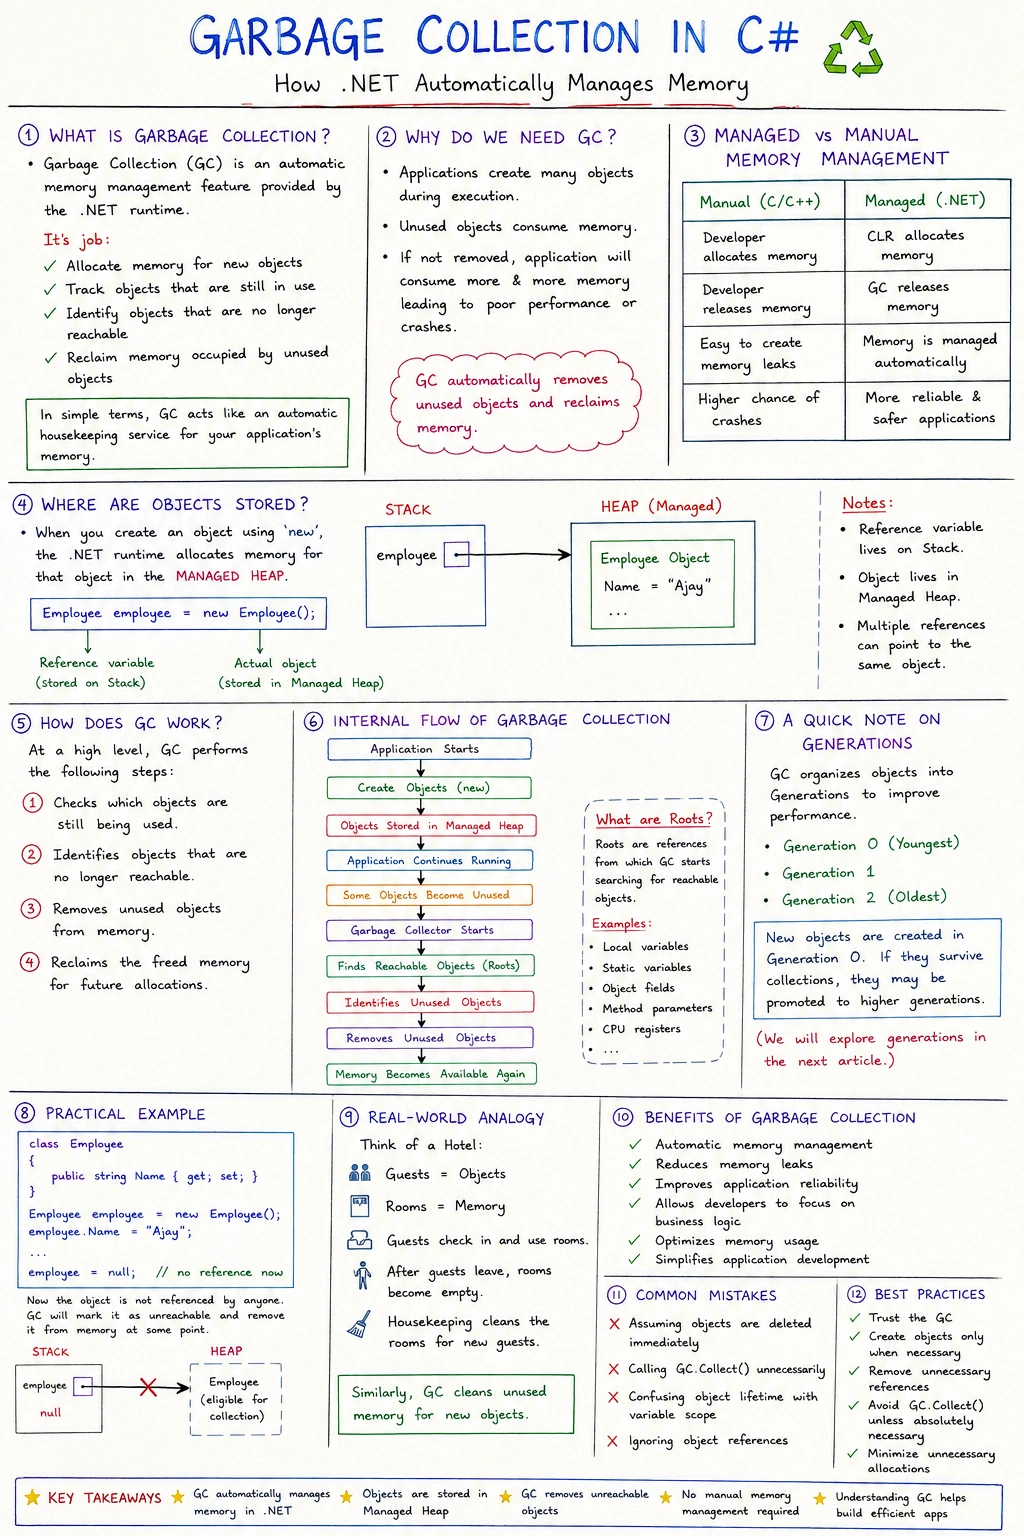 GARBAGE COLLECTION IN C#
How .NET Automatically Manages Memory
1 WHAT IS GARBAGE COLLECTION?
• Garbage Collection (GC) is an automatic
memory management feature provided by
the .NET runtime.
It's job:
✓ Allocate memory for new objects
✓ Track objects that are still in use
✓ Identify objects that are no longer
reachable
✓ Reclaim memory occupied by unused
objects
In simple terms, GC acts like an automatic
housekeeping service for your application's
memory.
2 WHY DO WE NEED GC?
• Applications create many objects
during execution.
• Unused objects consume memory.
• If not removed, application will
consume more & more memory
leading to poor performance or
crashes.
GC automatically removes
unused objects and reclaims
memory.
3 MANAGED vs MANUAL
MEMORY MANAGEMENT
Manual (C/C++)
Managed (.NET)
Developer
allocates memory
CLR allocates
memory
Developer
releases memory
GC releases
memory
Easy to create
memory leaks
Memory is managed
automatically
Higher chance of
crashes
More reliable &
safer applications
4 WHERE ARE OBJECTS STORED?
• When you create an object using 'new',
the .NET runtime allocates memory for
that object in the MANAGED HEAP.
Employee employee = new Employee();
Reference variable
(stored on Stack)
Actual object
(stored in Managed Heap)
STACK
employee
HEAP (Managed)
Employee Object
Name = "Ajay"
...
Notes:
• Reference variable
lives on Stack.
• Object lives in
Managed Heap.
• Multiple references
can point to the
same object.
5 HOW DOES GC WORK?
At a high level, GC performs
the following steps:
1 Checks which objects are
still being used.
2 Identifies objects that are
no longer reachable.
3 Removes unused objects
from memory.
4 Reclaims the freed memory
for future allocations.
6 INTERNAL FLOW OF GARBAGE COLLECTION
Application Starts
Create Objects (new)
Objects Stored in Managed Heap
Application Continues Running
Some Objects Become Unused
Garbage Collector Starts
Finds Reachable Objects (Roots)
Identifies Unused Objects
Removes Unused Objects
Memory Becomes Available Again
What are Roots?
Roots are references
from which GC starts
searching for reachable
objects.
Examples:
• Local variables
• Static variables
• Object fields
• Method parameters
• CPU registers
• ...
7 A QUICK NOTE ON
GENERATIONS
GC organizes objects into
Generations to improve
performance.
• Generation 0 (Youngest)
• Generation 1
• Generation 2 (Oldest)
New objects are created in
Generation 0. If they survive
collections, they may be
promoted to higher generations.
(We will explore generations in
the next article.)
8 PRACTICAL EXAMPLE
class Employee
{
public string Name { get; set; }
}
Employee employee = new Employee();
employee.Name = "Ajay";
...
employee = null; // no reference now
Now the object is not referenced by anyone.
GC will mark it as unreachable and remove
it from memory at some point.
STACK
employee
null
HEAP
Employee
(eligible for
collection)
9 REAL-WORLD ANALOGY
Think of a Hotel:
Guests = Objects
Rooms = Memory
Guests check in and use rooms.
After guests leave, rooms
become empty.
Housekeeping cleans the
rooms for new guests.
Similarly, GC cleans unused
memory for new objects.
10 BENEFITS OF GARBAGE COLLECTION
✓ Automatic memory management
✓ Reduces memory leaks
✓ Improves application reliability
✓ Allows developers to focus on
business logic
✓ Optimizes memory usage
✓ Simplifies application development
11 COMMON MISTAKES
✗ Assuming objects are deleted
immediately
✗ Calling GC.Collect() unnecessarily
✗ Confusing object lifetime with
variable scope
✗ Ignoring object references
12 BEST PRACTICES
✓ Trust the GC
✓ Create objects only
when necessary
✓ Remove unnecessary
references
✓ Avoid GC.Collect()
unless absolutely
necessary
✓ Minimize unnecessary
allocations
★ KEY TAKEAWAYS
★ GC automatically manages
memory in .NET
★ Objects are stored in
Managed Heap
★ GC removes unreachable
objects
★ No manual memory
management required
★ Understanding GC helps
build efficient apps